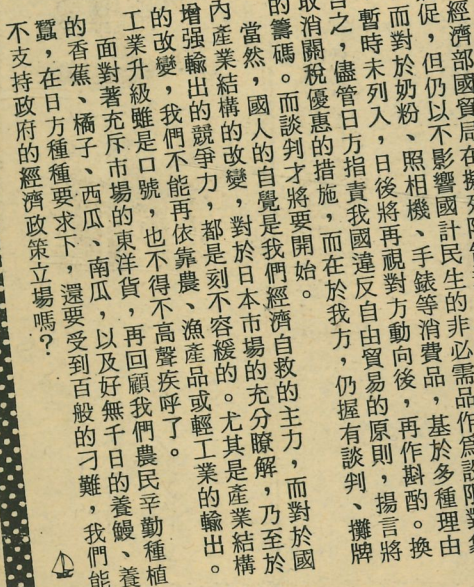 經濟部國貿局在擬
促，但仍以不影響國計民生的非必需品作為設限對象
而對於奶粉、照相機、手錶等消費品，基於多種理由
暫時未列入，日後將再視對方動向後，再作斟酌。換
言之，儘管日方指責我國違反自由貿易的原則，揚言將
取消關稅優惠的措施，而在於我方，仍握有談判、攤牌
的籌碼。而談判才將要開始。
當然，國人的自覺是我們經濟自救的主力，而對於國
內產業結構的改變，對於日本市場的充分瞭解，乃至於
增强輸出的競爭力，都是刻不容緩的。尤其是產業結構
的改變，我們不能再依靠農、漁產品或輕工業的輸出。
工業升級雖是口號，也不得不高聲疾呼了。
面對著充斥市場的東洋貨，再回顧我們農民辛勤種植
的香蕉、橘子、西瓜、南瓜，以及好無千日的養鰻、養
蠶，在日方種種要求下，還要受到百般的刁難，我們能
不支持政府的經濟政策立場嗎？